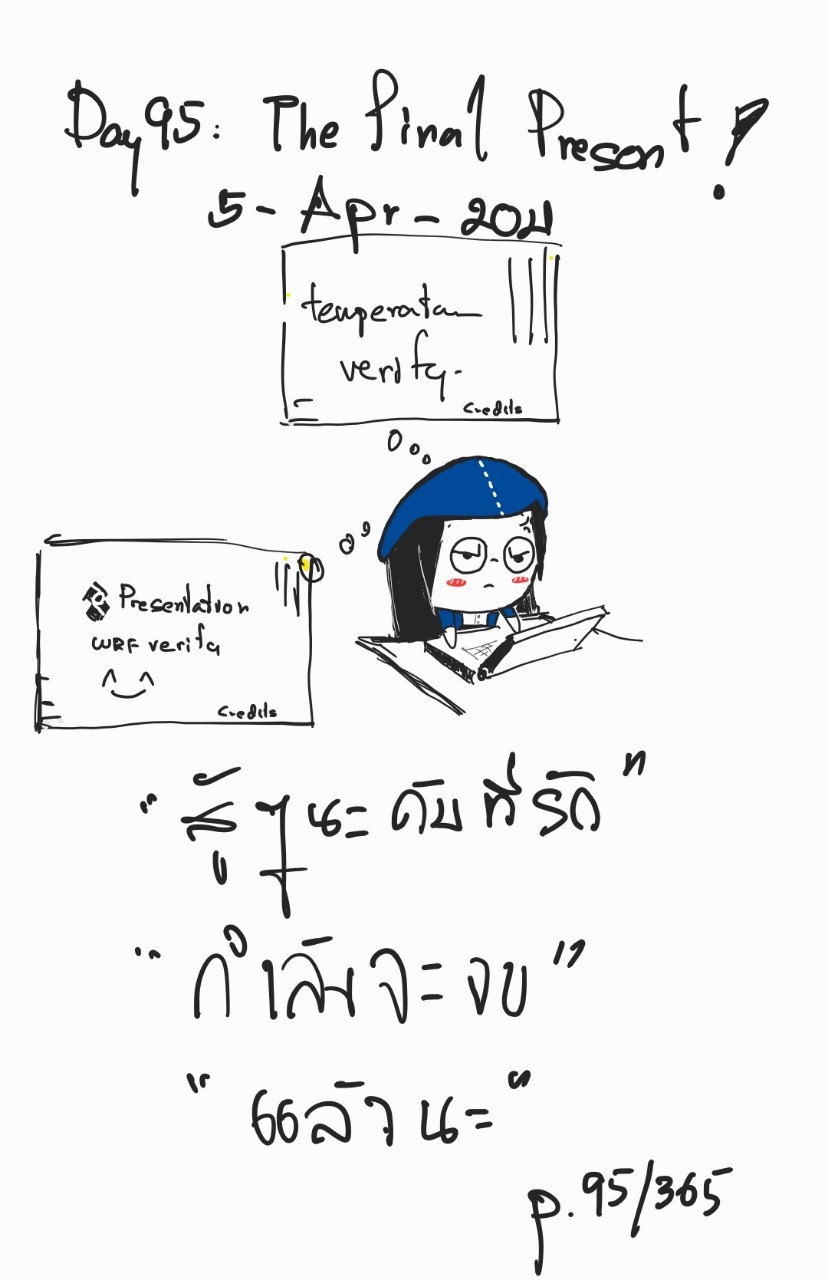 Day 95: The final Present!
5 - Apr - 2021
verify.
Credits
Presentation
WRF verify
Credits
"สู้ ๆ นะ คับ ที่รัก"
"กำลังจะจบ"
"แล้วนะ"
p. 95/365